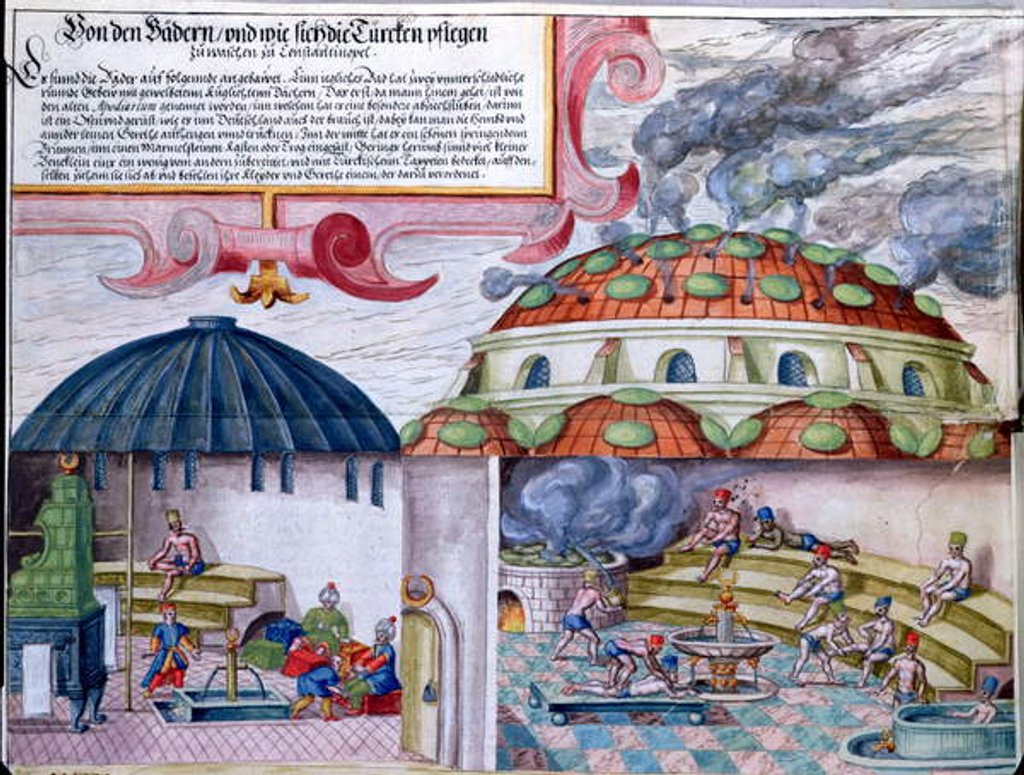 Von den Bädern / und wie sich die Türcken pflegen
zu waschen zu Constantinopel.
Es sinnd die Bäder auf folgennde art gebawet. Einn iegliches Bad hat zwey unnterschiedliche
runnde Gebew mit gewelbetem Kuglichtem Dächern / Das erst / da mann hinein gehet / ist von
den alten Apoditerium genennet worden / inn welchem hat es eine besondere abziechstuben / darinn
ist ein Ofen und gerüst / wie es inn Deutschland auch der brauch ist / dabey kan man die Hembd und
annder leinen Gerethe aufhengen unnd trücknen / Inn der mitte hat es ein schönen springendenn
Brunnen / inn einen Marmelsteinen Kasten oder Trog eingefast / Gerings herumb sinnd viel kleiner
Bencklein einer ein wenig vom andern und mit Türckischenn Tappeten bedecket / auff den
selben ziehenn sie sich ab und befehlen ihre Kleyder und Gerethe einem / der darzu verordenet.